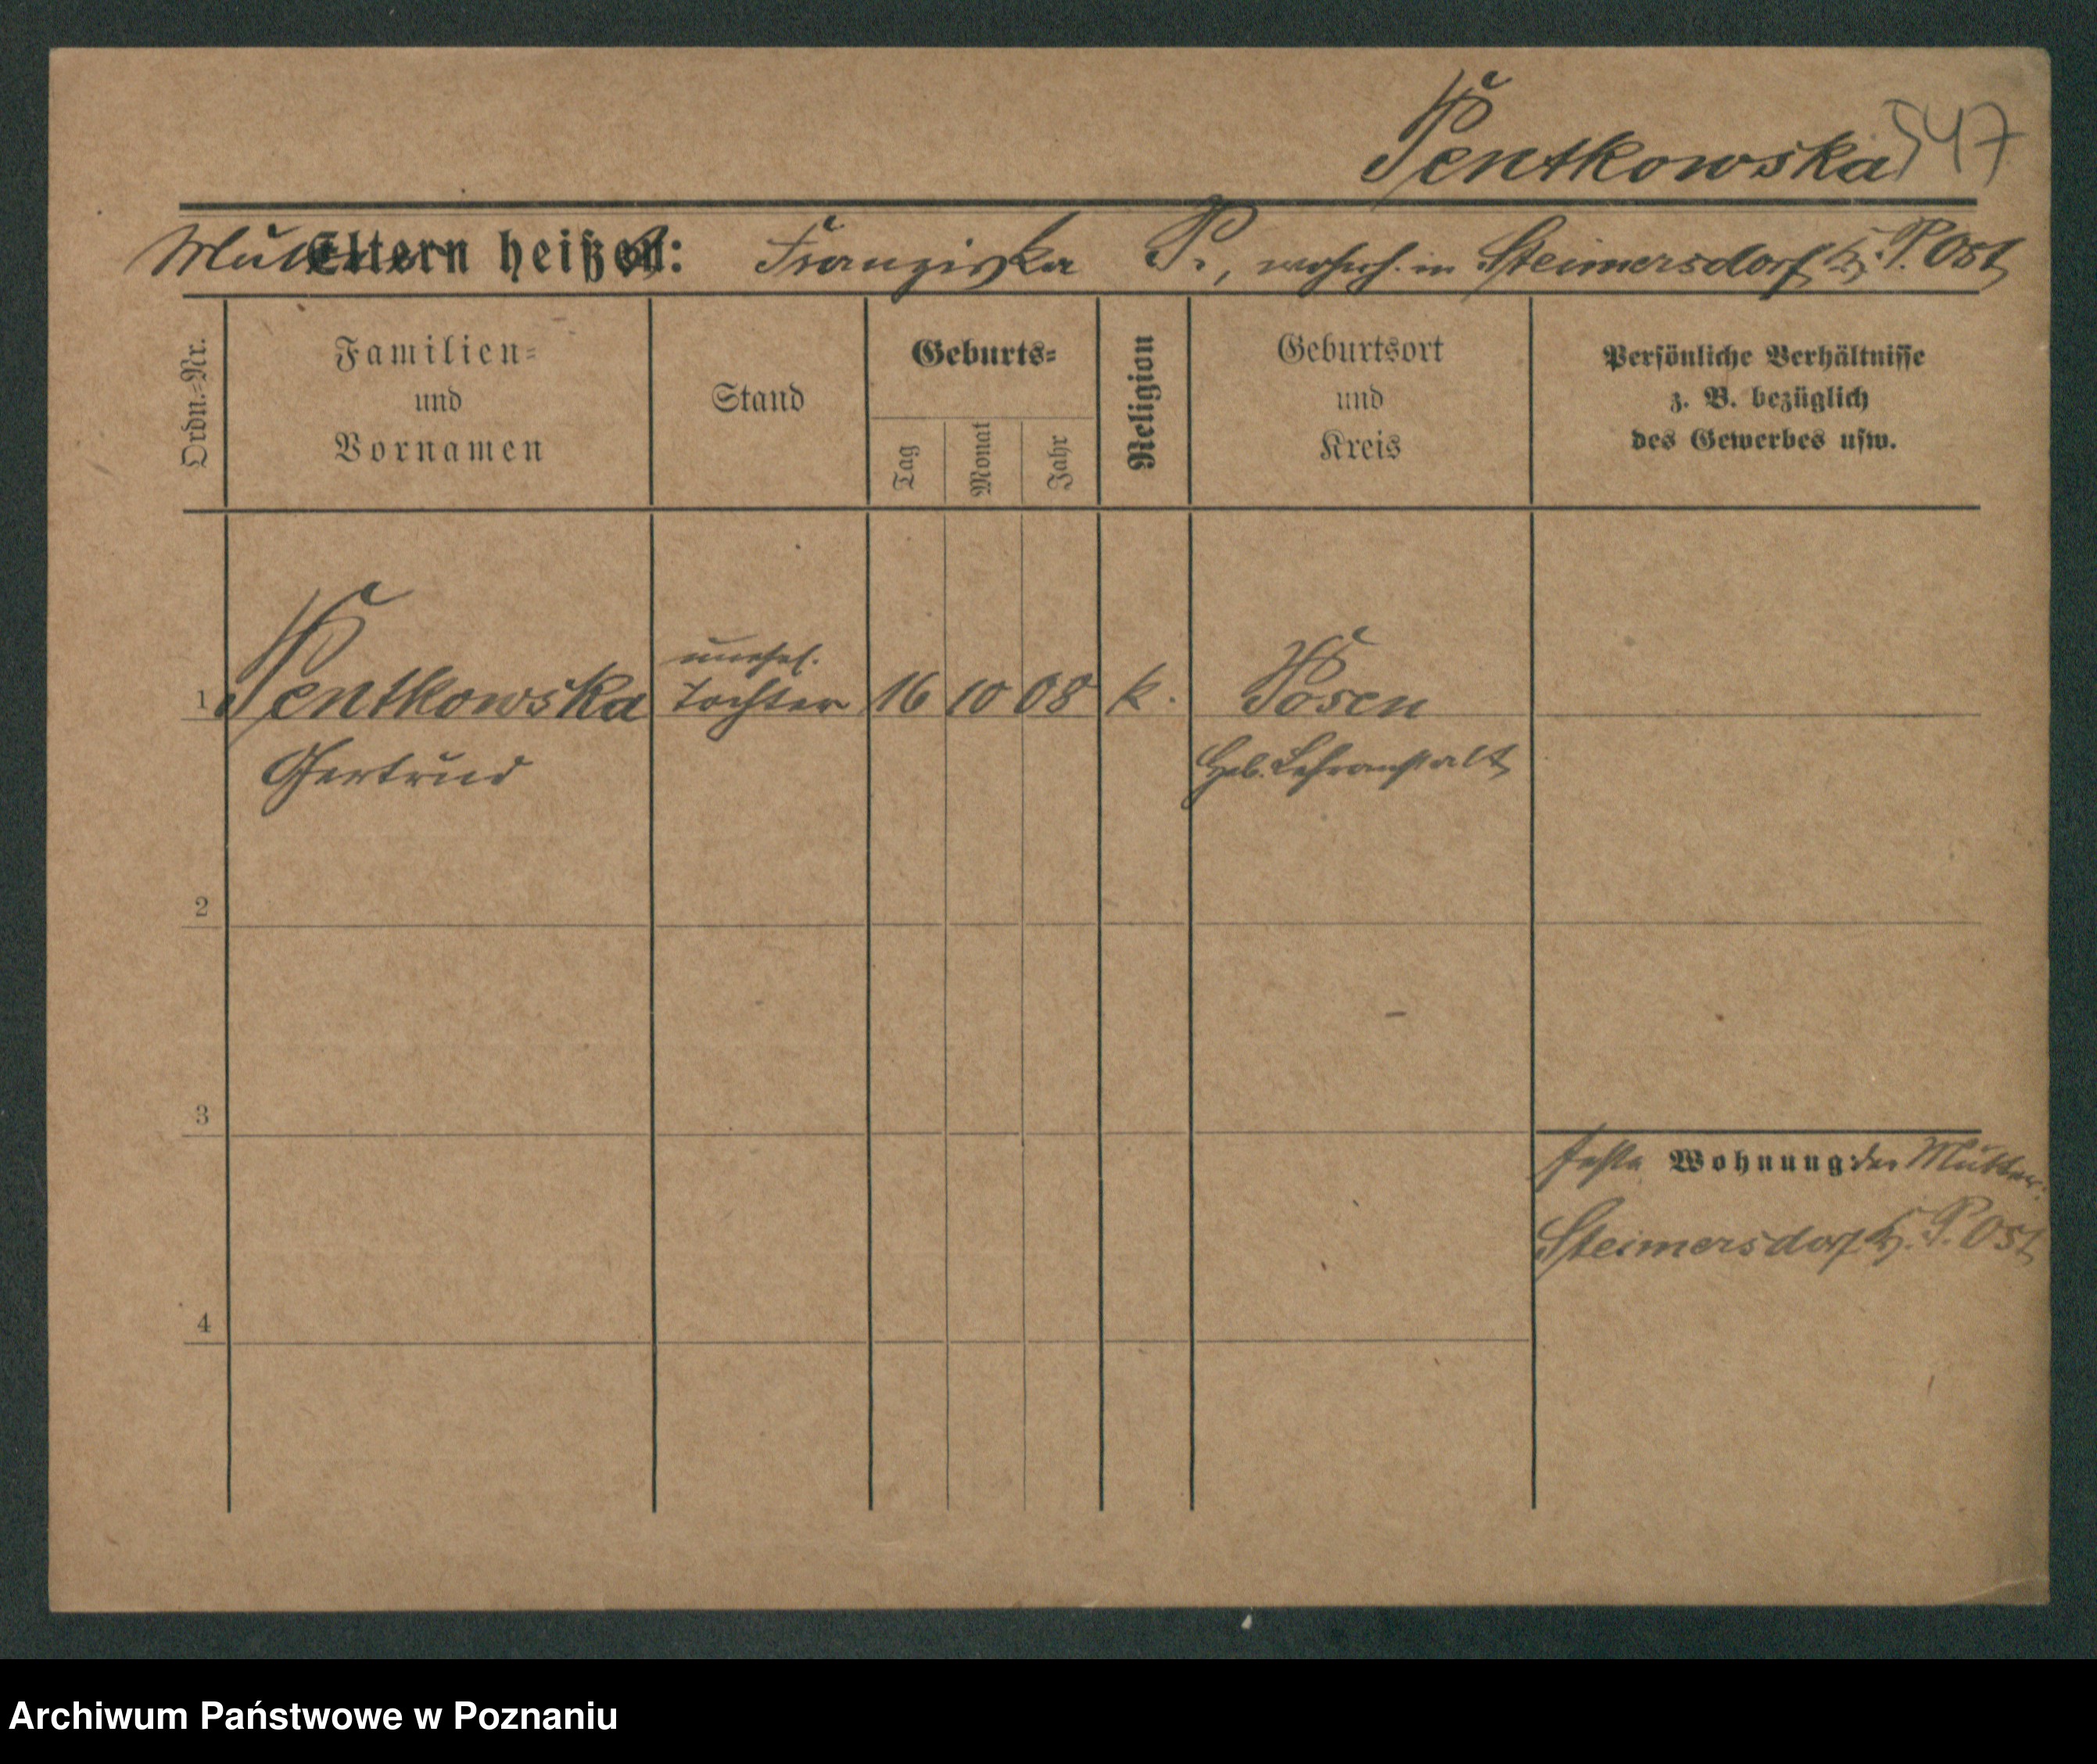 Pentkowska
547
Mutter Eltern heißen: Franziska P., wohnh. in Steimersdorf, K. P. Ost
Ordn.-Nr.
Familien-
und
Vornamen
Stand
Geburts-
Tag
Monat
Jahr
Religion
Geburtsort
und
Kreis
Persönliche Verhältnisse
z. B. bezüglich
des Gewerbes usw.
unehel.
1 Pentkowska Tochter 16 10 08 k. Posen
Gertrud Heb. Lehranstalt
2
3
Wohnung: der Mutter:
Steimersdorf K. P. Ost
4
Archiwum Państwowe w Poznaniu